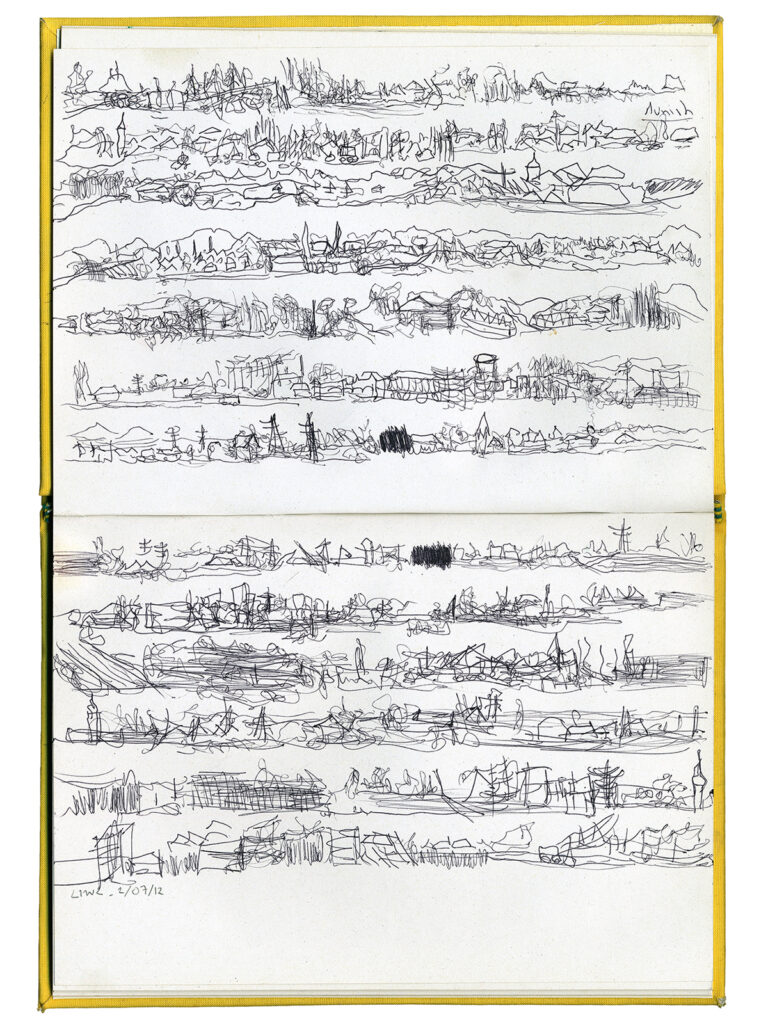 Munich
LINZ - 2/07/12